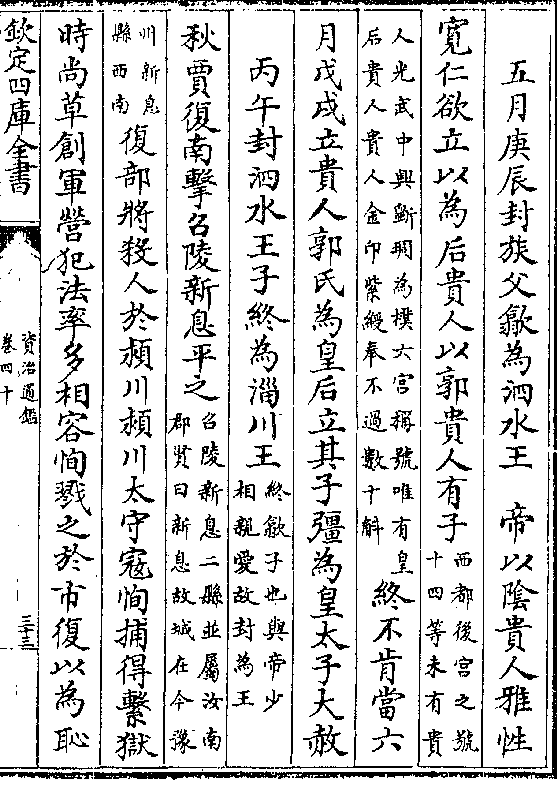 五月庚辰封族父歙為泗水王　帝以隂貴人雅性
寛仁欲立以為后貴人以郭貴人有子
西都後宮之號
十四等未有貴
人光武中興斵琱為樸六宮稱號唯有皇
后貴人貴人金印紫綬奉不過數十斛
終不肯當六
月戊戌立貴人郭氏為皇后立其子彊為皇太子大赦
丙午封泗水王子終為淄川王
終歙子也與帝少
相親愛故封為王
秋賈復南擊召陵新息平之
召陵新息二縣並屬汝南
郡賢曰新息故城在今豫
川新息
縣西南
復部將殺人於潁川潁川太守寇恂捕得繫獄
時尚草創軍營犯法率多相容恂戮之於市復以為恥
欽定四庫全書
資治通鑑
卷四十
三十三